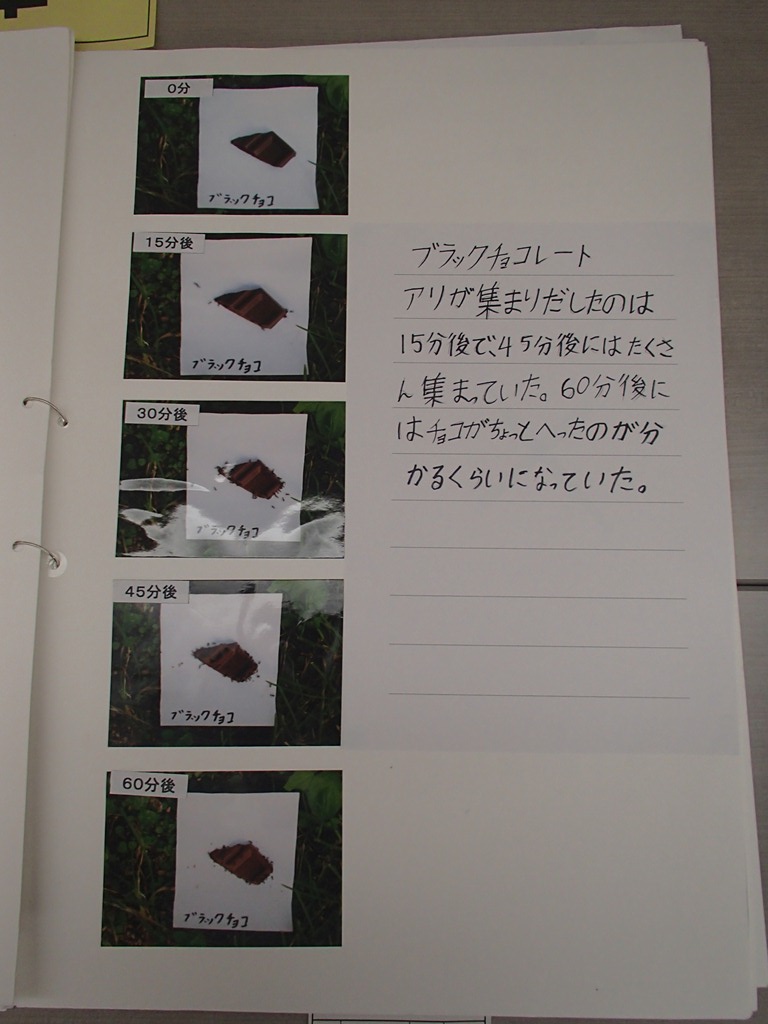 0分
ブラックチョコ
15分後
ブラックチョコ
30分後
ブラックチョコ
45分後
ブラックチョコ
60分後
ブラックチョコ
ブラックチョコレート
アリが集まりだしたのは
15分後で、45分後にはたくさ
ん集まっていた。60分後に
はチョコがちょっとへったのが分
かるくらいになっていた。